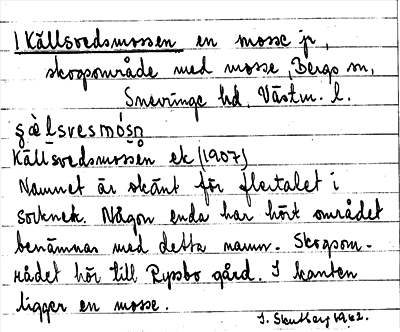 1 Källsvedsmossen en mosse jr,
skogsområde med mosse, Bergs sn,
Snevringe hd, Västm. l.
Källsvedsmossen ek (1907)
Namnet är okänt för flertalet i
socknen. Någon enda har hört området
benämnas med detta namn. Skogsom-
rådet hör till Ryssbo gård. I kanten
ligger en mosse.
1962.